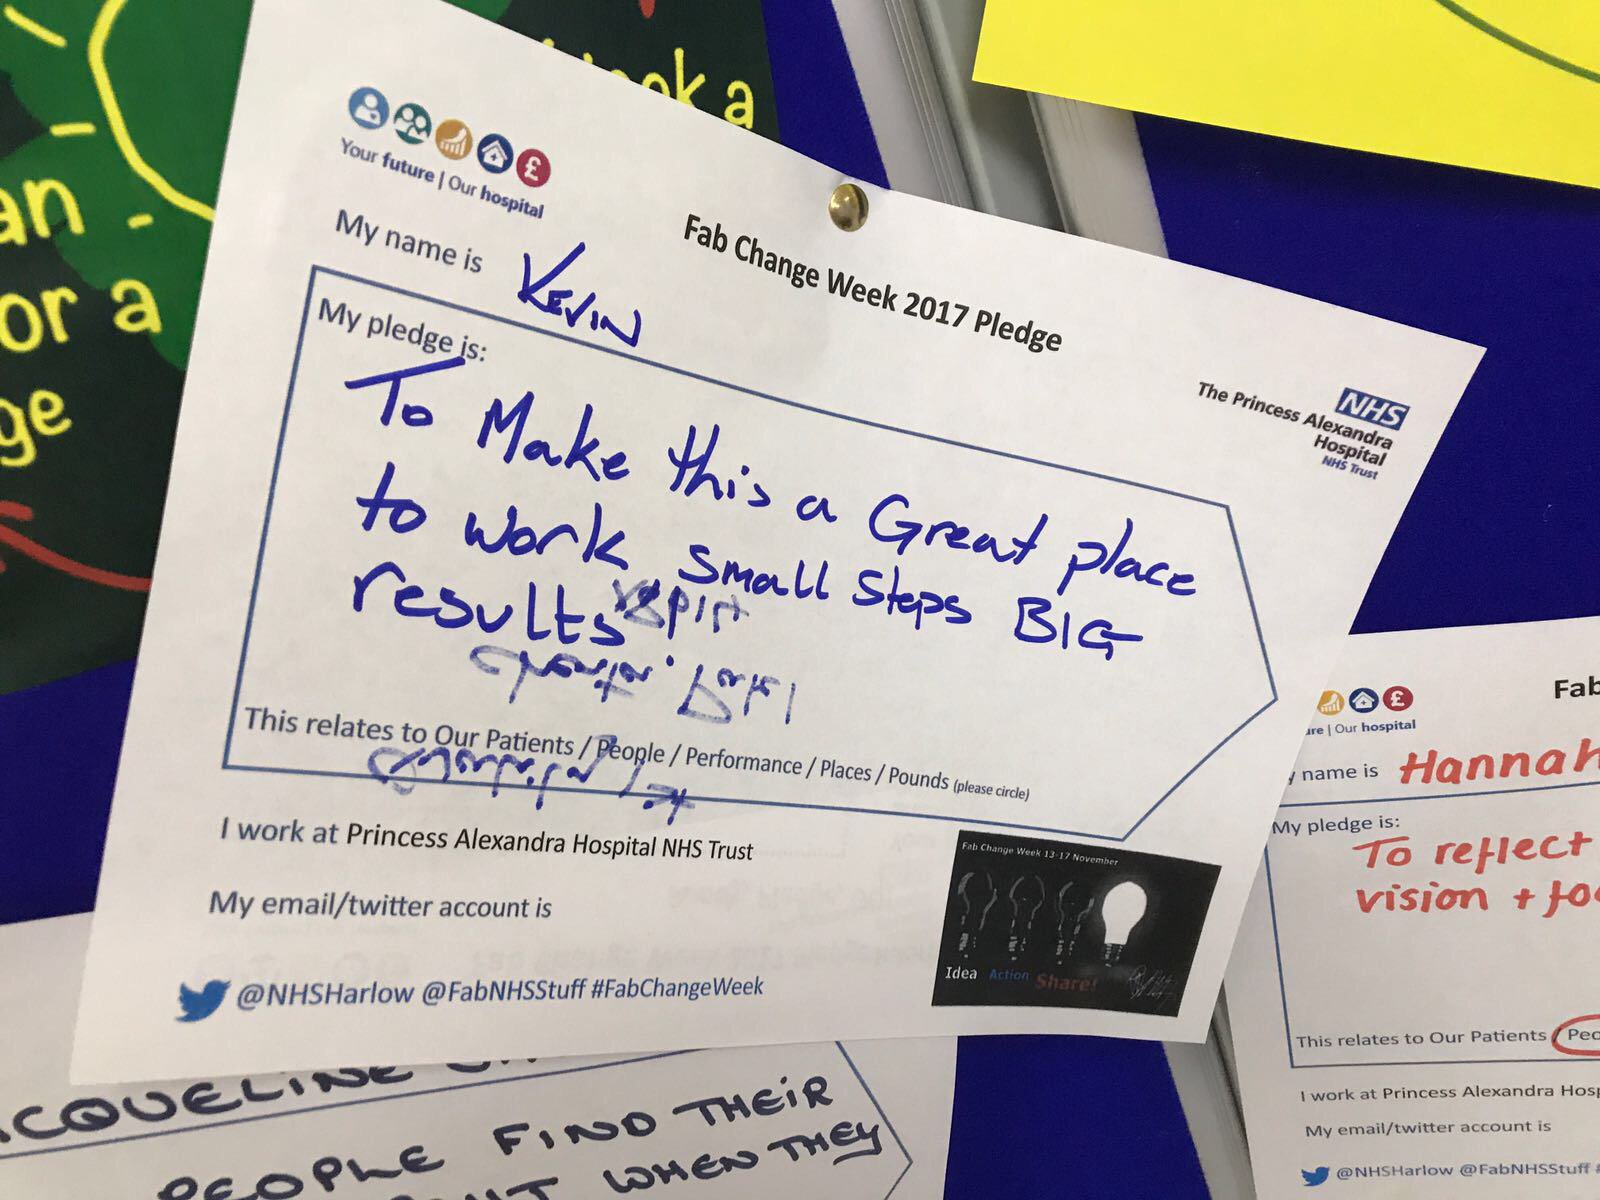 ok a
an
or a
ge
Your future | Our hospital
Fab Change Week 2017 Pledge
My name is KEVIN
The Princess Alexandra
Hospital
NHS Trust
NHS
My pledge is:
To Make this a Great place
to work small steps BIG
results
This relates to Our Patients / People / Performance / Places / Pounds (please circle)
I work at Princess Alexandra Hospital NHS Trust
My email/twitter account is
@NHSHarlow @FabNHSStuff #FabChangeWeek
Fab Change Week 13-17 November
Idea Action Share!
Fab
ure | Our hospital
y name is Hannah
My pledge is:
To reflect
vision + fo
This relates to Our Patients / Peo
I work at Princess Alexandra Hosp
My email/twitter account is
@NHSHarlow @FabNHSStuff #
CQUELINE
PEOPLE FIND THEIR
WHEN THEY